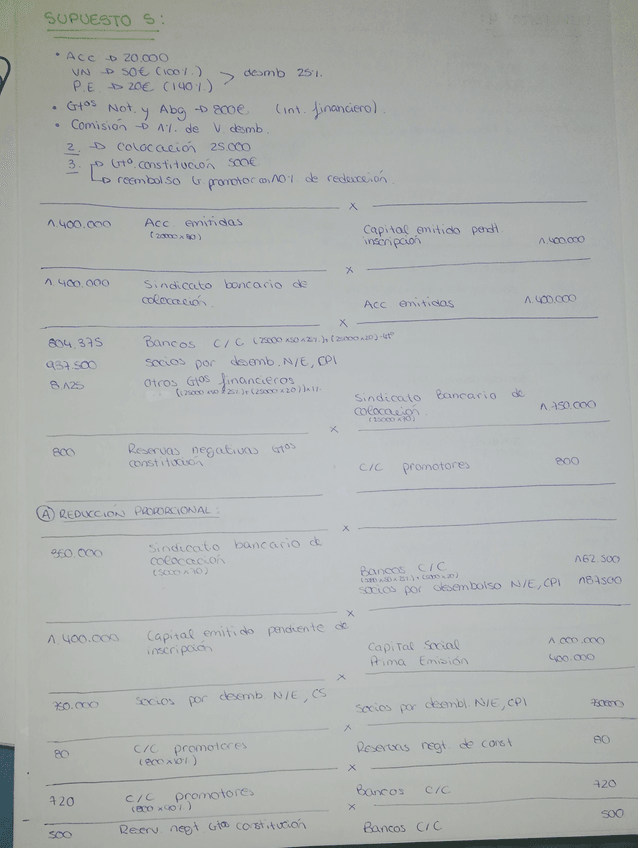 SUPUESTO 5:
• Acc → 20.000
VN → 50€ (100%)
P.E. → 20€ (140%) > desemb 25%
• Gtos Not. y Abg → 800€ (int. financiero).
• Comisión → 1% de V desmb.
2. → colocación 25.000
3. → Gto. constitución 500€
→ reembolso G promotor 10% de reducción.
x
1.400.000 Acc. emitidas Capital emitido pendt. inscripción 1.400.000
x
1.400.000 Sindicato bancario de colocación Acc emitidas 1.400.000
x
804.375 Bancos C/C
937.500 Socios por desemb. N/E, CPI
8.125 Otros Gtos financieros
Sindicato Bancario de colocación. 1.750.000
x
800 Reservas negativas Gtos constitución
C/C promotores 800
Ⓐ REDUCCIÓN PROPORCIONAL:
x
350.000 Sindicato bancario de colocación
(5000 x 70)
Bancos C/C 162.500
Socios por desembolso N/E, CPI 187.500
x
1.400.000 Capital emitido pendiente de inscripción
Capital Social 1.000.000
Prima Emisión 400.000
x
750.000 Socios por desemb N/E, CS Socios por desembl. N/E, CPI 750.000
x
80 C/C promotores Reservas negt. de const 80
(800 x 10%)
x
720 C/C promotores Bancos C/C 720
(800 x 90%)
x
500 Reserv negt Gtos constitución Bancos C/C 500